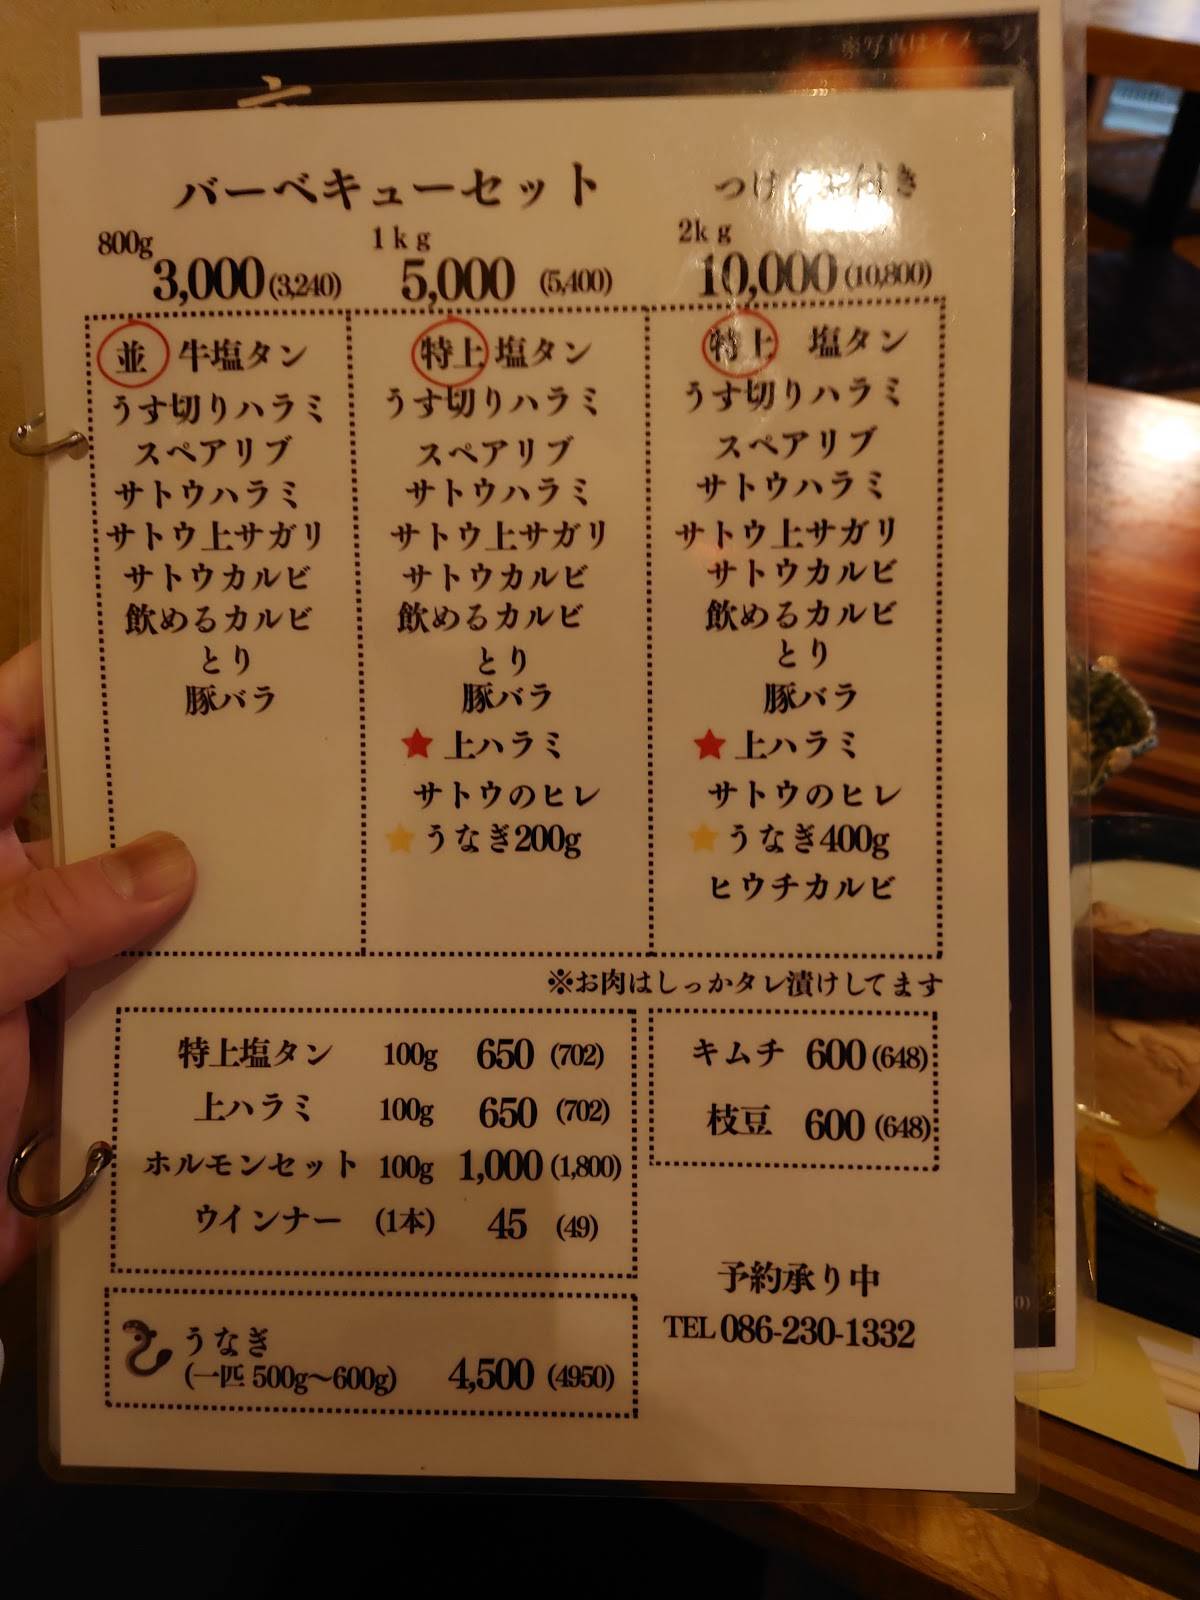 ※写真はイメージ
バーベキューセット
つけダレ付き
800g
3,000(3,240)
1kg
5,000 (5,400)
2kg
10,000(10,800)
並 牛塩タン
うす切りハラミ
スペアリブ
サトウハラミ
サトウ上サガリ
サトウカルビ
飲めるカルビ
とり
豚バラ
特上 塩タン
うす切りハラミ
スペアリブ
サトウハラミ
サトウ上サガリ
サトウカルビ
飲めるカルビ
とり
豚バラ
★ 上ハラミ
サトウのヒレ
★ うなぎ200g
特上 塩タン
うす切りハラミ
スペアリブ
サトウハラミ
サトウ上サガリ
サトウカルビ
飲めるカルビ
とり
豚バラ
★ 上ハラミ
サトウのヒレ
★ うなぎ400g
ヒウチカルビ
※お肉はしっかタレ漬けしてます
特上塩タン 100g 650 (702)
上ハラミ 100g 650 (702)
ホルモンセット 100g 1,000 (1,800)
ウインナー (1本) 45 (49)
キムチ 600 (648)
枝豆 600 (648)
うなぎ
(一匹 500g〜600g) 4,500 (4950)
予約承り中
TEL 086-230-1332